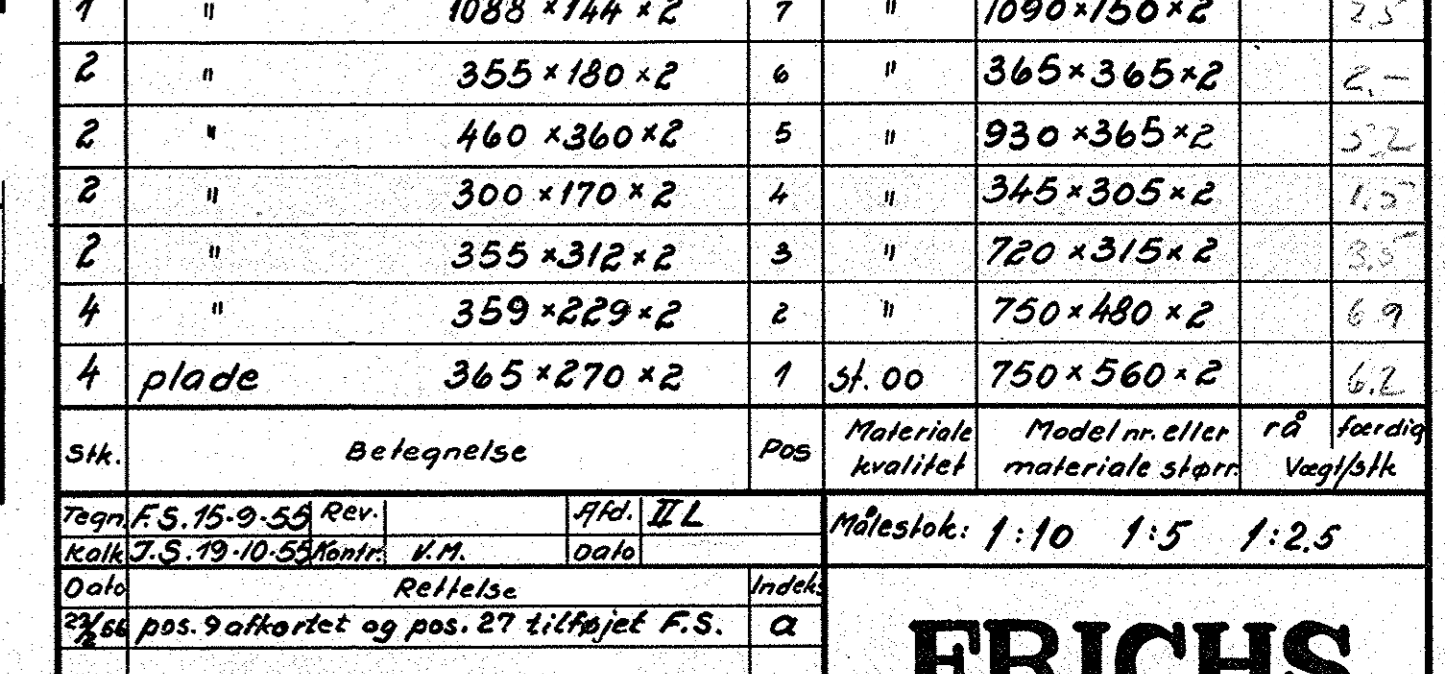 1 " 1088 × 144 × 2 7 " 1090 × 150 × 2 2,5
2 " 355 × 180 × 2 6 " 365 × 365 × 2 2.-
2 " 460 × 360 × 2 5 " 930 × 365 × 2
2 " 300 × 170 × 2 4 " 345 × 305 × 2 1.5
2 " 355 × 312 × 2 3 " 720 × 315 × 2 3.5
4 " 359 × 229 × 2 2 " 750 × 480 × 2 6 9
4 plade 365 × 270 × 2 1 st. 00 750 × 560 × 2 6.2
Stk. Betegnelse Pos Materiale kvalitet Model nr. eller materiale størr. rå færdig Vægt/stk
Tegn. F.S. 15-9-55 Rev. Afd. II L
Kalk J.S. 19-10-55 Kontr. V.M. Dato
Målestok: 1:10 1:5 1:2.5
Dato Rettelse Indeks
pos. 9 afkortet og pos. 27 tilføjet F.S. a
FRICHS